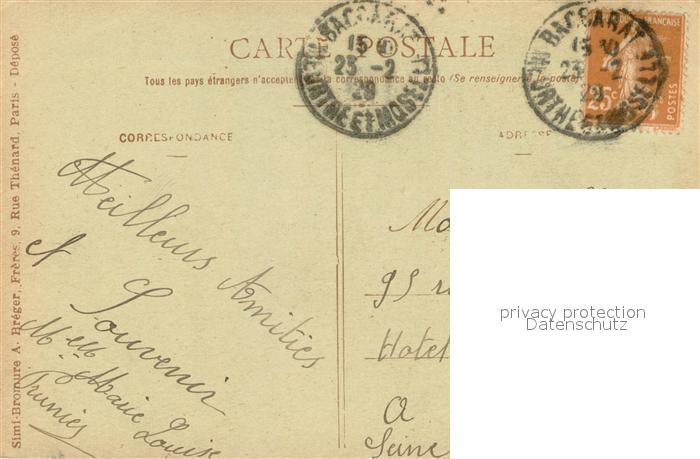 CARTE POSTALE
Tous les pays étrangers n'acceptent la correspondance au recto (Se renseigner à la poste)
CORRESPONDANCE
ADRESSE
BACCARAT
15 30
23 -2
MEURTHE ET MOSELLE
BACCARAT
15 30
23 -2
MEURTHE ET MOSELLE
FRANÇAISE
25c
POSTES
Simi-Bromure A. Bréger, Frères, 9, Rue Thénard, Paris - Déposé
Meilleurs Amitiés
et Souvenir
Melle Marie Louise
95
Hotel
a
Seine
privacy protection
Datenschutz